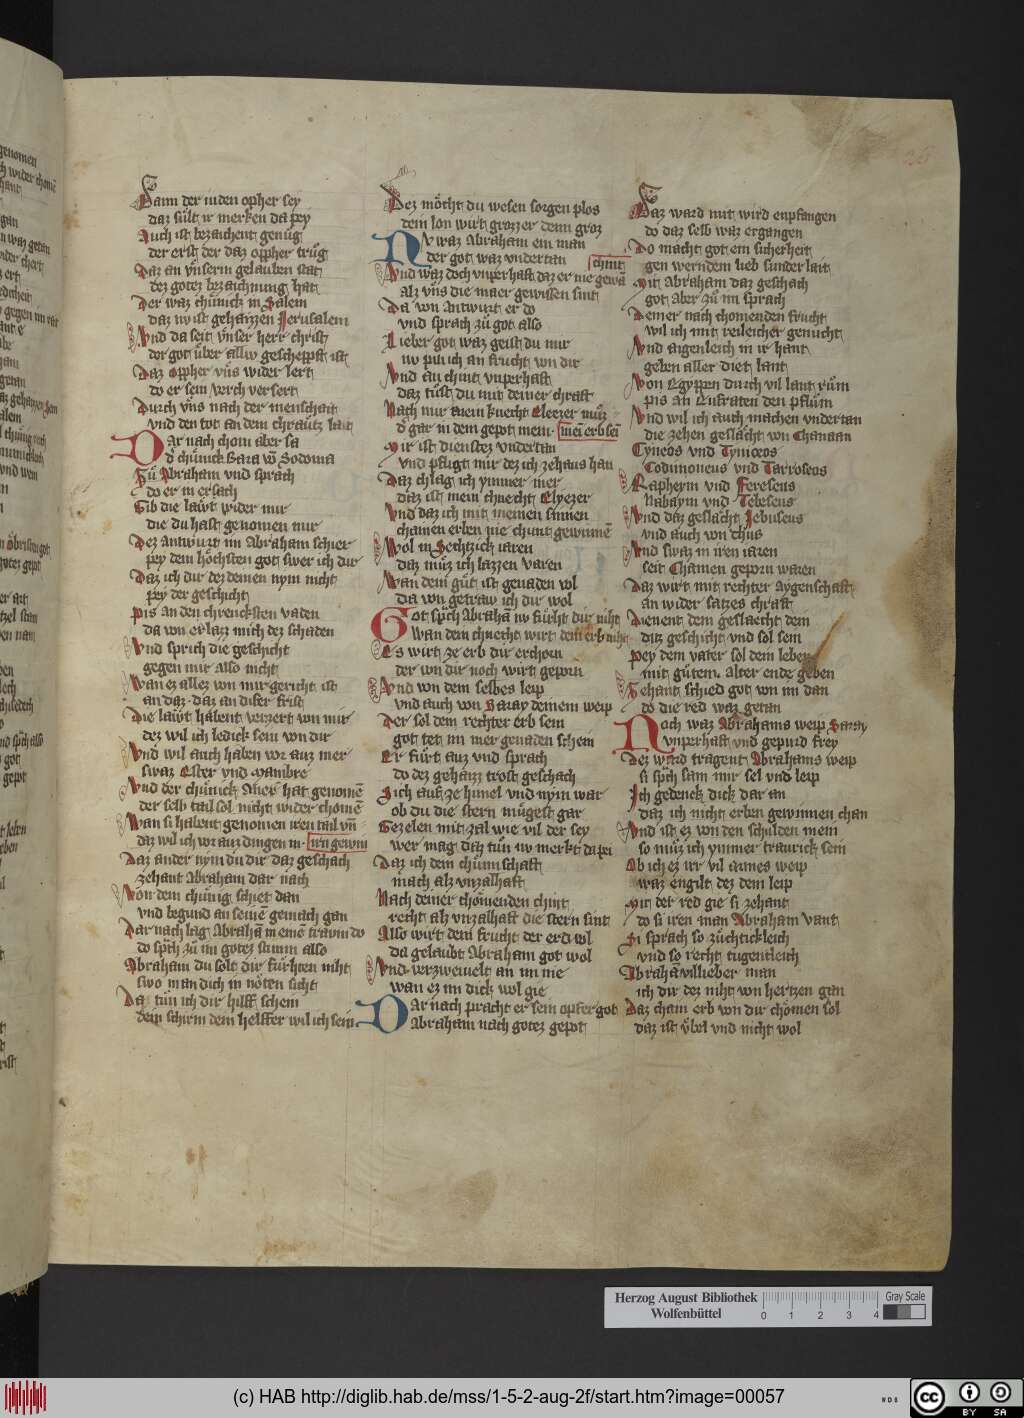 Dann der iuden opher sey
daz sült ir merken da pey
Auch ist bezaichent genüg
der erst der daz oppher trüg
Daz an vnserm gelauben stat
dez gotez bezaichnung hat
Der waz chünick in Salem
daz nv ist gehaizzen Jerusalem
Vnd da seit vnser herr christ
der got über alliv gescheppft ist
Daz oppher vns wider lert
do er sein verch versert
Durch vns nach der menschait
vnd den tot an dem chräutz lait
Dar nach chom aber sa
d͛ chünick Bara vō Sodoma
Zü Abraham vnd sprach
do er in ersach
Gib die läwt wider mir
die du hast genomen mir
Dez antwurt im Abraham schier
pey dem höchsten got swer ich dir
Daz ich dir dez deinen nym nicht
pey der geschicht
Pis an den chrencksten vaden
da von erlazz mich dez schaden
Vnd sprich die geschicht
gegen mir also nicht
Wan ez allez von mir gericht ist
an daz daz an diser frist
Die läwt habent verzert von mir
dez wil ich ledick sein von dir
Vnd wil auch haben vor auz mer
swaz Ester vnd Mambre
Vnd der chünick Aner hat genomē
der selb tail sol nicht wider chomē
Wan si habent genomen iren tail vn̄
daz wil ich vor auz dingen in irn gewin
Daz ander nym du dir daz geschach
zehant Abraham dar nach
Von dem chünig schiet dan
vnd begund an seinē gemach gan
Dar nach lag Abrahā in einē traum do
do sp͛ch zü im gotez stimm also
Abraham du solt dir fürhten niht
swo man dich in nöten sicht
Da tün ich dir hilff schein
dein schirm dein helffer wil ich sein
Dez möcht du wesen sorgen plos
dein lon wirt grozzer denn groz
Nv waz Abraham ein man
der got waz vndertan
Vnd waz doch vnperhaft daz er nie gewā chint
alz vns die maer gewissen sint
Da von Antwurt er do
vnd sprach zü got also
Lieber got waz geist du mir
nv pin ich an frucht von dir
Vnd an chint vnperhaft
daz tüst du mit deiner chraft
Nach mir mein knecht Eleezer müz
d͛ gar in dem gepot mein mei͞ erb sei͞
Mir ist dienstez vndertan
vnd pfligt mir dez ich zehaus han
Daz chlag ich ymmer mer
daz ist mein chnecht Elyezer
Vnd daz ich mit meinen sinnen
chainen erben nie chunt gewinnē
Wol in Sechtzick iaren
daz müz ich lazzen varen
Wan dem güt ist genaden vol
da von getraw ich dir wol
Got sp͛ch Abrahā nv fürht dir niht
Wan dein chnecht wirt dein erb niht
Es wirt ze erb dir erchorn
der von dir noch wirt geporn
Vnd von dem selbes leip
vnd auch von Saray deinem weip
Der sol dein rechter erb sein
got tet im mer genaden schein
Er fürt auz vnd sprach
do dez gehaizz trost geschach
Sich auf ze himel vnd nym war
ob du die stern mügest gar
Gezelen mit zal wie vil der sey
wer mag daz tün nv merkt da pei
Daz ich dein chümschaft
mach alz vnzalhaft
Nach deiner chömenden chint
recht alz vnzalhaft die stern sint
Also wirt dein frucht der erd vol
da gelaubt Abraham got wol
Vnd verzweiuelt an im nie
wan ez im dick wol gie
Dar nach pracht er sein opfer got
Abraham nach gotez gepot
Daz ward mit wird enpfangen
do daz selb waz ergangen
Do macht got ein sicherheit
gen werndem lieb sunder lait
Mit Abraham daz geschach
got aber zü im sprach
Deiner nach chomenden frucht
wil ich mit reileicher genucht
Vnd aigenleich in ir hant
geben aller diet lant
Von Egyppen durch vil lant rüm
pis an Eufraten den pflüm
Vnd wil ich auch machen vndertan
die zehen geslächt von Chanaan
Cyneos vnd Cyniceos
Codmoneus vnd Tarroseos
Rapheym vnd Fereseus
Nabaym vnd Tebeseus
Vnd daz geslächt Jebuseus
vnd auch von Chus
Vnd swaz in iren iaren
seit Chamen geporn waren
Daz wirt mit rechter aygenschaft
an wider satzes chraft
Dienent dem geslaecht dein
ditz geschicht vnd sol sein
Pey dem vater sol dein leben
mit gütem alter ende geben
Zehant schied got von im dan
do die red waz getan
Noch waz Abrahams weip Saray
vnperhaft vnd gepurd frey
Dez ward tragent Abrahams weip
si sp͛ch sam mir sel vnd leip
Ich gedenck dick dar an
daz ich nicht erben gewinnen chan
Vnd ist ez von den schulden mein
so müz ich ymmer traurick sein
Ob ich ez irr vil armes weip
waz engilt dez dein leip
Mit der red gie si zehant
do si iren man Abraham vant
Si sprach so züchtickleich
vnd so recht tugentleich
Abrahā vil lieber man
ich dir dez niht von hertzen gan
Daz chain erb von dir chömen sol
daz ist übel vnd nicht wol
Herzog August Bibliothek
Wolfenbüttel
Gray Scale
0 1 2 3 4
(c) HAB http://diglib.hab.de/mss/1-5-2-aug-2f/start.htm?image=00057
CC BY SA